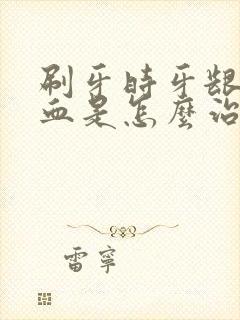 刷牙時牙龈
血是怎麼治
雷寧